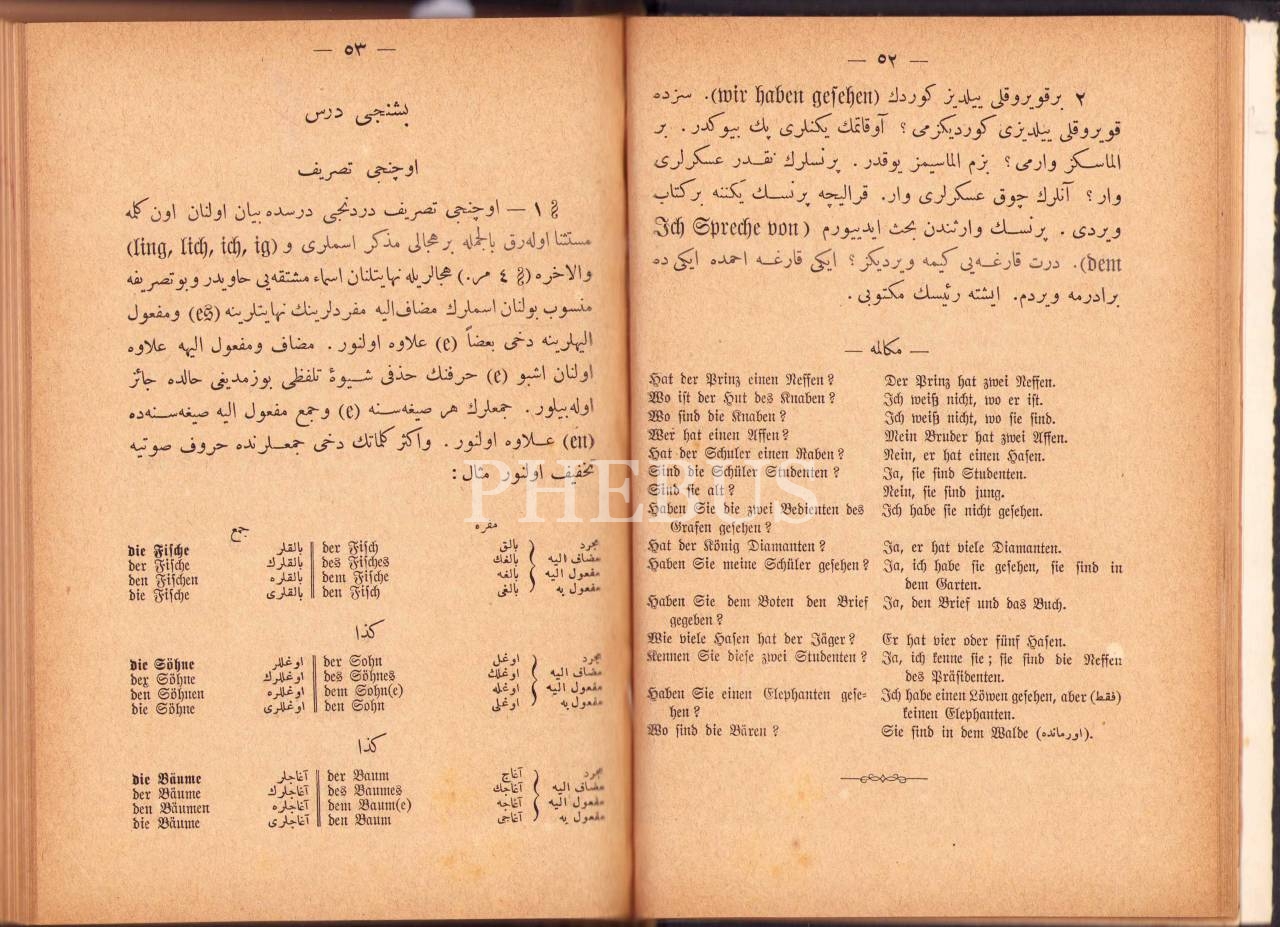 — ٥٢ —
٢ برقويروقلى ييلديز كوردك (wir haben gesehen). سزده
قويروقلى ييلديزى كورديكزمى؟ آوقاتك يكنلرى پك بيوكدر. بر
الماسكز وارمى؟ بزم الماسيمز يوقدر. پرنسلرك نقدر عسكرلرى
وار؟ آنلرك چوق عسكرلرى وار. قراليچه پرنسك يكننه بركتاب
ويردى. پرنسك وارثندن بحث ايدييورم (Ich Spreche von
dem). درت قارغه‌يى كيمه ويرديكز؟ ايكى قارغه احمده ايكى ده
برادرمه ويردم. ايشته رئيسك مكتوبى.
— مكالمه —
Hat der Prinz einen Neffen? Der Prinz hat zwei Neffen.
Wo ist der Hut des Knaben? Ich weiß nicht, wo er ist.
Wo sind die Knaben? Ich weiß nicht, wo sie sind.
Wer hat einen Affen? Mein Bruder hat zwei Affen.
Hat der Schuler einen Raben? Nein, er hat einen Hasen.
Sind die Schüler Studenten? Ja, sie sind Studenten.
Sind sie alt? Nein, sie sind jung.
Haben Sie die zwei Bedienten des Ich habe sie nicht gesehen.
Grafen gesehen?
Hat der König Diamanten? Ja, er hat viele Diamanten.
Haben Sie meine Schüler gesehen? Ja, ich habe sie gesehen, sie sind in
dem Garten.
Haben Sie dem Boten den Brief Ja, den Brief und das Buch.
gegeben?
Wie viele Hasen hat der Jäger? Er hat vier oder fünf Hasen.
Kennen Sie diese zwei Studenten? Ja, ich kenne sie; sie sind die Neffen
des Präsidenten.
Haben Sie einen Elephanten gese- Ich habe einen Löwen gesehen, aber (فقط)
hen? keinen Elephanten.
Wo sind die Bären? Sie sind in dem Walde (اورمانده).
— ٥٣ —
بشنجى درس
اوچنجى تصريف
§ ١ — اوچنجى تصريف دردنجى درسده بيان اولنان اون كله
مستثنا اوله‌رق بالجمله بر هجالى مذكر اسملرى و (ling, lich, ich, ig)
والاخره (§ ٤ مر.) هجالريله نهايتلنان اسماء مشتقه‌يى حاويدر وبوتصريفه
منسوب بولنان اسملرك مضاف‌اليه مفردلرينك نهايتلرينه (es) ومفعول
اليهلرينه دخى بعضاً (e) علاوه اولنور. مضاف ومفعول اليهه علاوه
اولنان اشبو (e) حرفنك حذفى شيوۀ تلفظى بوزمديغى حالده جائز
اوله‌بيلور. جمعلرك هر صيغه‌سنه (e) وجمع مفعول اليه صيغه‌سنه‌ده
(en) علاوه اولنور. واكثر كلماتك دخى جمعلرنده حروف صوتيه
تخفيف اولنور مثال:
مفرد جمع
مجرد بالق der Fisch بالقلر die Fische
مضاف اليه بالغك des Fisches بالقلرك der Fische
مفعول اليه بالغه dem Fische بالقلره den Fischen
مفعول به بالغى den Fisch بالقلرى die Fische
كذا
مجرد اوغل der Sohn اوغللر die Söhne
مضاف اليه اوغلك des Sohnes اوغللرك der Söhne
مفعول اليه اوغله dem Sohn(e) اوغللره den Söhnen
مفعول به اوغلى den Sohn اوغللرى die Söhne
كذا
مجرد آغاج der Baum آغاجلر die Bäume
مضاف اليه آغاجك des Baumes آغاجلرك der Bäume
مفعول اليه آغاجه dem Baum(e) آغاجلره den Bäumen
مفعول به آغاجى den Baum آغاجلرى die Bäume
PHEBUS